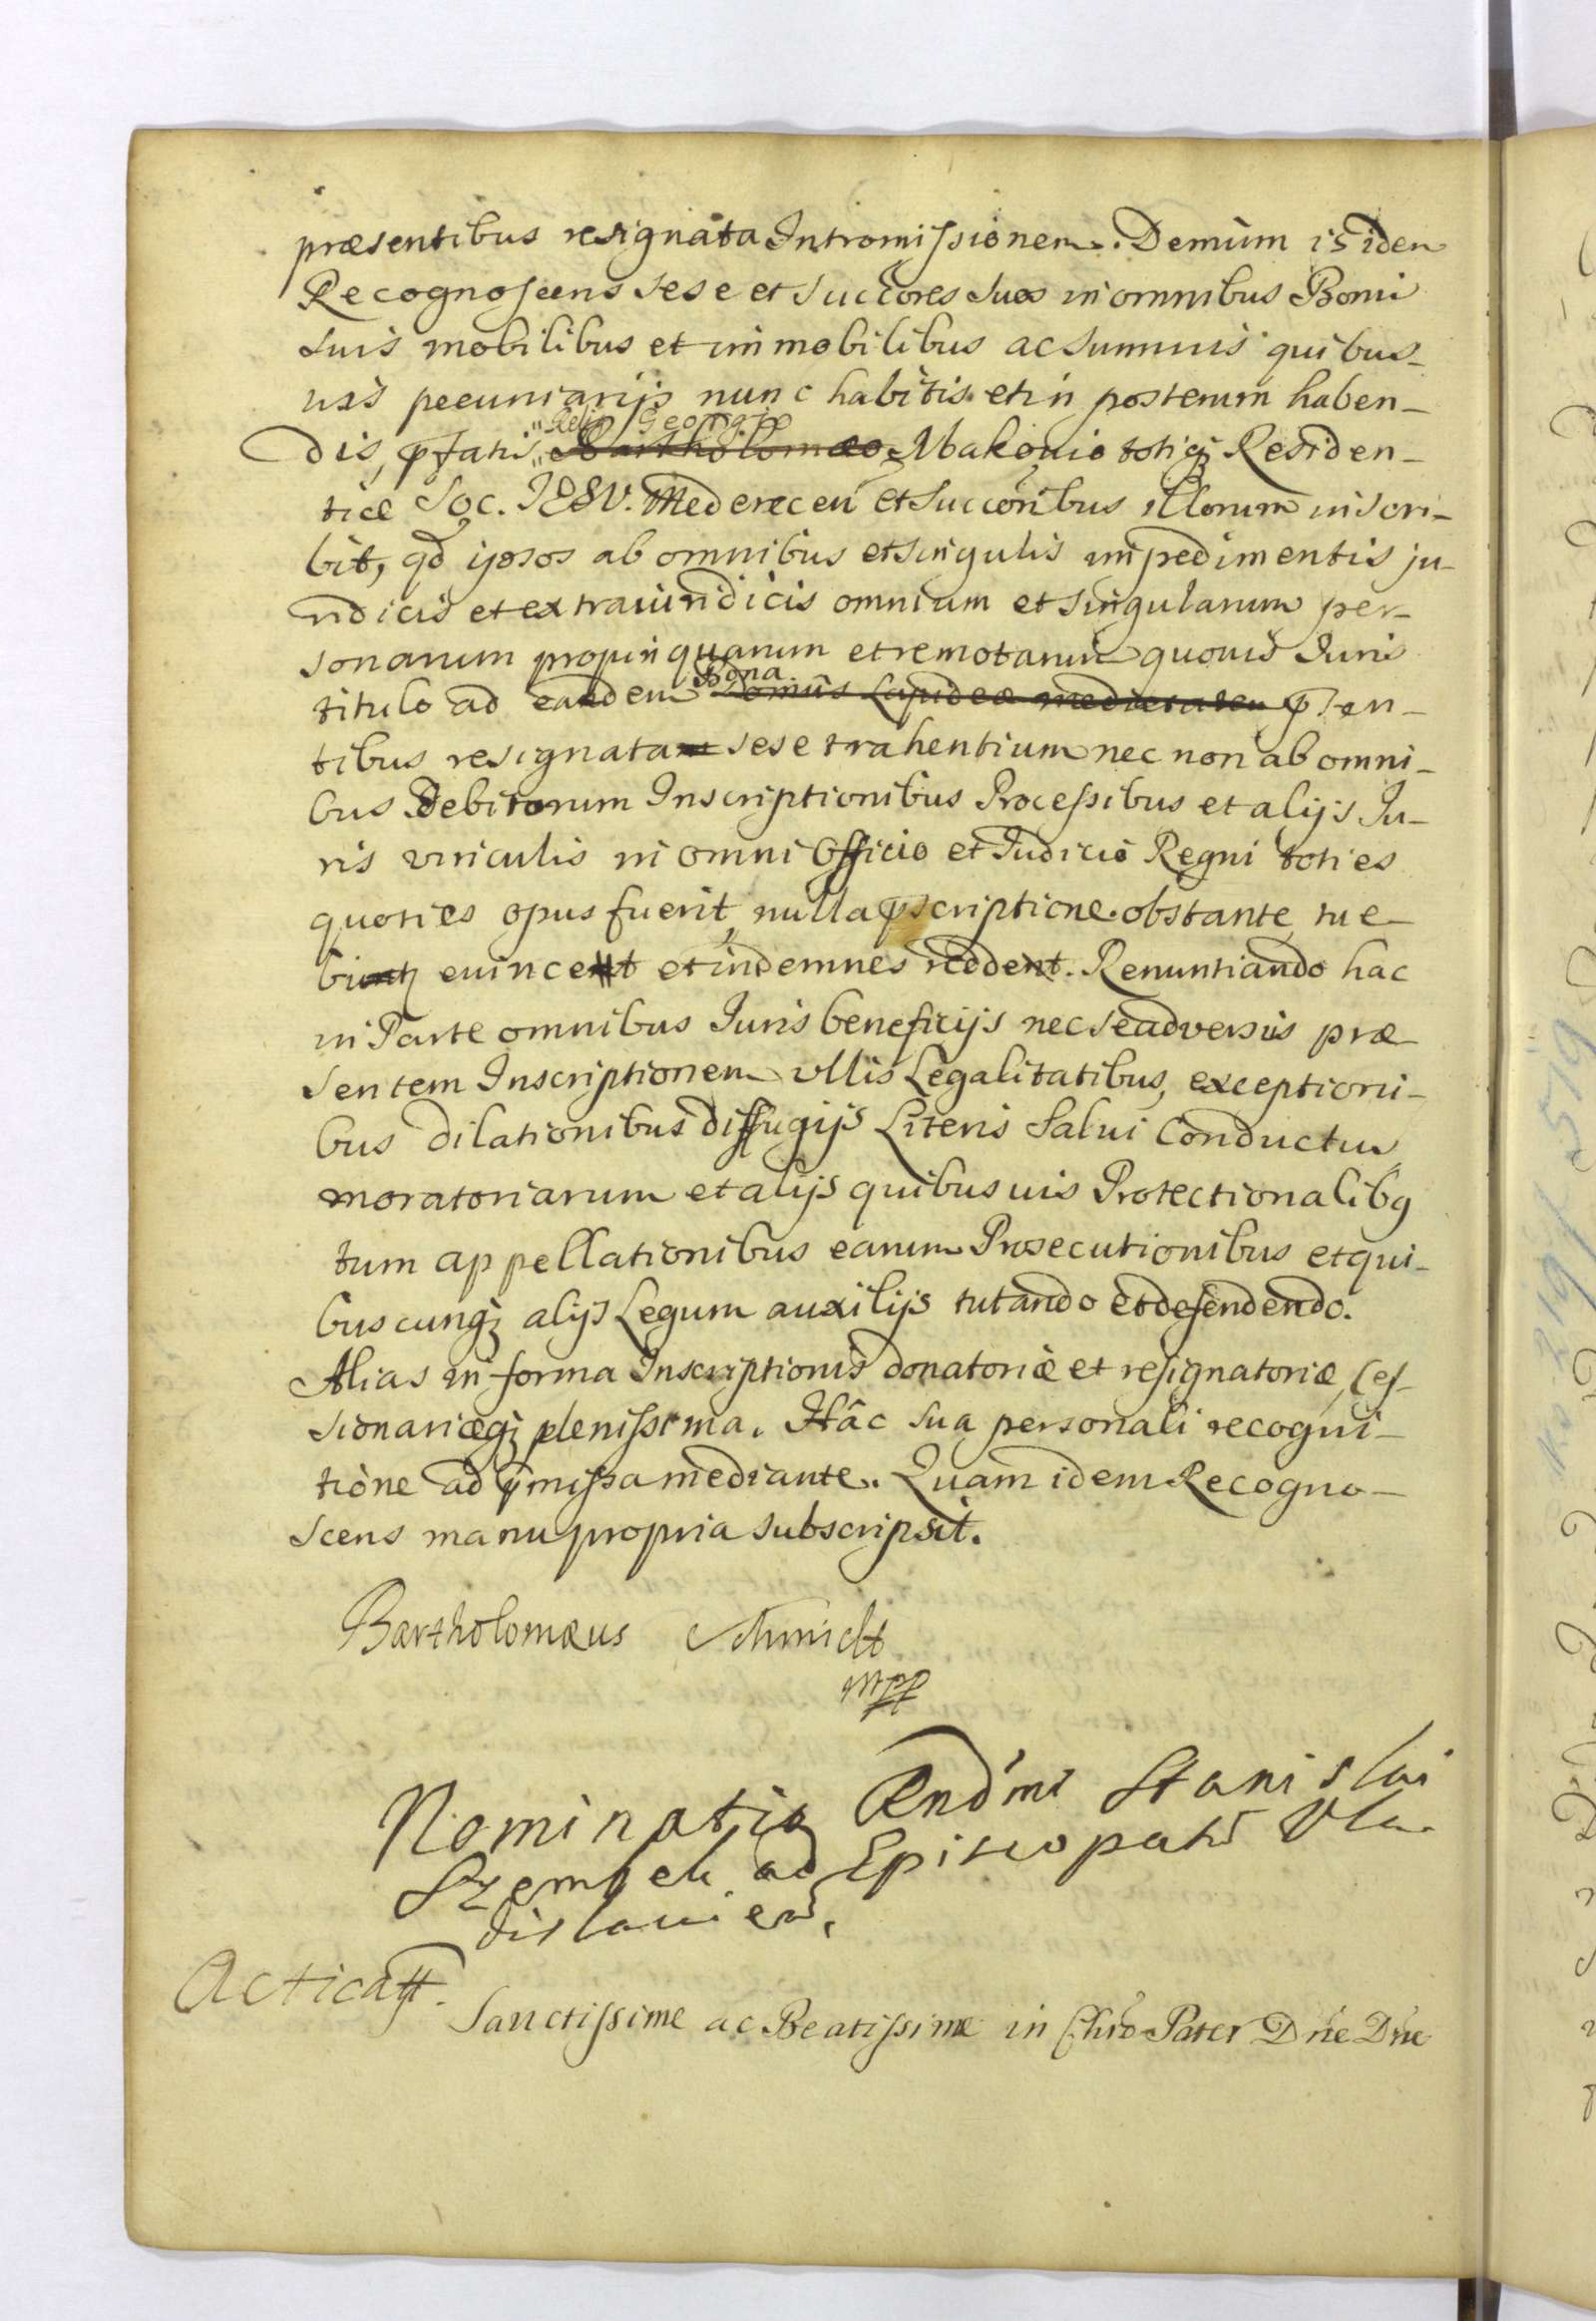 præsentibus resignata Intromissionem. Demùm is idem
Recognoscens sese et succores suos in omnibus Bonis
suis mobilibus et immobilibus ac summis quibus-
uis pecuniarijs nunc habitis et in posterum haben-
Georgio
dis, pfatis Bartholomæo Makouio totiqz Residen-
tiæ Soc. IESV. Mederecen et succoribus illorum inscri-
bit, qd ipsos ab omnibus et singulis impedimentis ju-
ridicis et extraiuridicis omnium et singularum per-
sonarum propinquarum et remotarum quouis Iuris
Bona
titulo ad eaedem Domus Lapideæ medietatem psen-
tibus resignata sese trahentium nec non ab omni-
bus Debitorum Inscriptionibus Processibus et alijs Iu-
ris vinculis in omni Officio et Iudicio Regni toties
quoties opus fuerit, nulla pscriptione obstante, tue-
euincent et indemnes reddent. Renuntiando hac
in Parte omnibus Iuris beneficijs nec se adversus præ
sentem Inscriptionem ullis Legalitatibus, exceptioni-
bus dilationibus diffugijs Literis Salui Conductus
moratoriarum et alijs quibusuis Protectionalibq
tum appellationibus earum Prosecutionibus et qui-
buscunqz alijs Legum auxilijs tutando et defendendo.
Alias in forma Inscriptionis donatoriæ et resignatoriæ, Ces-
sionariæqz plenissima. Hâc sua personali recogni-
tione ad pmissa mediante. Quam idem Recogno-
scens manu propria subscripsit.
Bartholomæus Schmidt
mpp
Nominatio Rndmi Stanislai
Szembek ad Episcopatu Vla-
dislauien.
Acticatt.
Sanctissime ac Beatissime in Chro Pater Dne Dne
1519